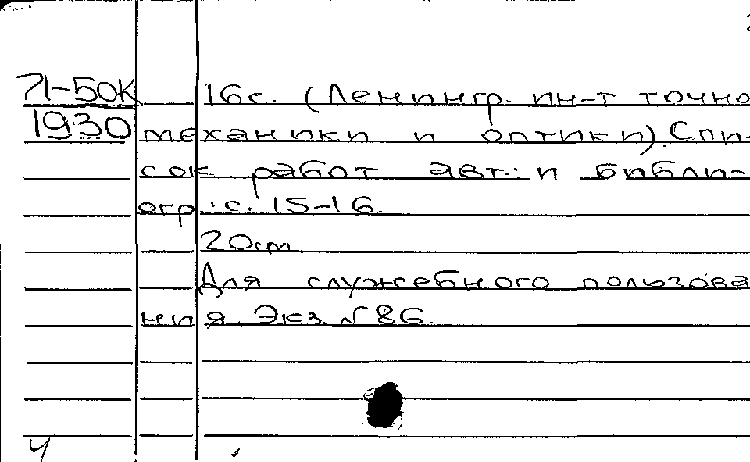 71-50К 16с. (Ленингр. ин-т точно
1930 механики и оптики). Спи-
сок работ авт.: и библи-
огр.: с. 15-16.
20см
Для служебного пользова
ния. Экз. №86
4